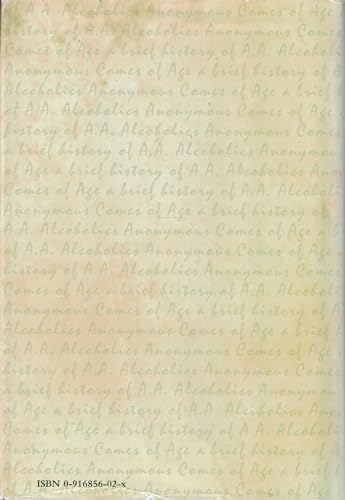 of A.A. Alcoholics Anonymous Comes of Age
history of A.A. Alcoholics Anonymous Come
Comes of Age a brief history of A.A. Alcoholi
Anonymous Comes of Age a brief history of
Alcoholics Anonymous Comes of Age a brief
of A.A. Alcoholics Anonymous Comes of Age
history of A.A. Alcoholics Anonymous Come
a brief history of A.A. Alcoholics Anonymous
of Age a brief history of A.A. Alcoholics
Comes of Age a brief history of A.A. Alcoholi
Anonymous Comes of Age a brief history of
A.A. Alcoholics Anonymous Comes of Age a
of A.A. Alcoholics Anonymous Comes of Age
history of A.A. Alcoholics Anonymous Come
Comes of Age a brief history of A.A. Alcoholi
Anonymous Comes of Age a brief history of
Alcoholics Anonymous Comes of Age a brief
of A.A. Alcoholics Anonymous Comes of Age
history of A.A. Alcoholics Anonymous Come
a brief history of A.A. Alcoholics Anonymous
of Age a brief history of A.A. Alcoholics
Comes of Age a brief history of A.A. Alcoholi
Anonymous Comes of Age a brief history of
Alcoholics Anonymous Comes of Age a brief
ISBN 0-916856-02-x